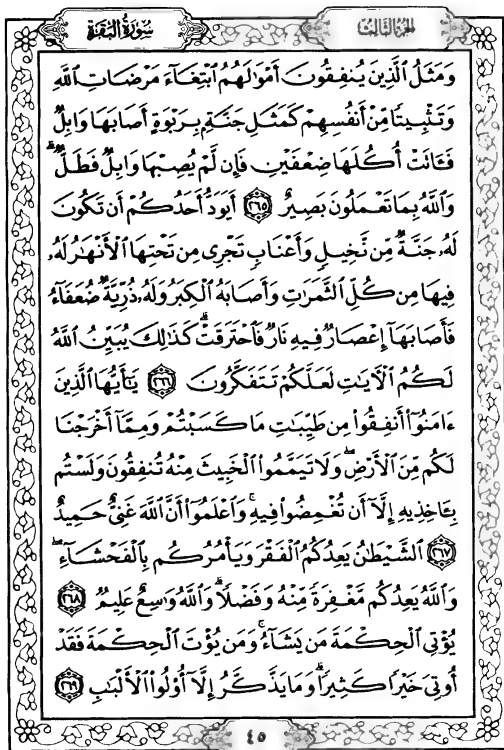 الجزء الثالث
سورة البقرة
وَمَثَلُ ٱلَّذِينَ يُنفِقُونَ أَمۡوَٰلَهُمُ ٱبۡتِغَآءَ مَرۡضَاتِ ٱللَّهِ
وَتَثۡبِيتٗا مِّنۡ أَنفُسِهِمۡ كَمَثَلِ جَنَّةِۭ بِرَبۡوَةٍ أَصَابَهَا وَابِلٞ
فَـَٔاتَتۡ أُكُلَهَا ضِعۡفَيۡنِ فَإِن لَّمۡ يُصِبۡهَا وَابِلٞ فَطَلّٞۗ
وَٱللَّهُ بِمَا تَعۡمَلُونَ بَصِيرٌ ٢٦٥ أَيَوَدُّ أَحَدُكُمۡ أَن تَكُونَ
لَهُۥ جَنَّةٞ مِّن نَّخِيلٖ وَأَعۡنَابٖ تَجۡرِي مِن تَحۡتِهَا ٱلۡأَنۡهَٰرُ لَهُۥ
فِيهَا مِن كُلِّ ٱلثَّمَرَٰتِ وَأَصَابَهُ ٱلۡكِبَرُ وَلَهُۥ ذُرِّيَّةٞ ضُعَفَآءُ
فَأَصَابَهَآ إِعۡصَارٞ فِيهِ نَارٞ فَٱحۡتَرَقَتۡۗ كَذَٰلِكَ يُبَيِّنُ ٱللَّهُ
لَكُمُ ٱلۡأٓيَٰتِ لَعَلَّكُمۡ تَتَفَكَّرُونَ ٢٦٦ يَٰٓأَيُّهَا ٱلَّذِينَ
ءَامَنُوٓاْ أَنفِقُواْ مِن طَيِّبَٰتِ مَا كَسَبۡتُمۡ وَمِمَّآ أَخۡرَجۡنَا
لَكُم مِّنَ ٱلۡأَرۡضِۖ وَلَا تَيَمَّمُواْ ٱلۡخَبِيثَ مِنۡهُ تُنفِقُونَ وَلَسۡتُم
بِـَٔاخِذِيهِ إِلَّآ أَن تُغۡمِضُواْ فِيهِۚ وَٱعۡلَمُوٓاْ أَنَّ ٱللَّهَ غَنِيٌّ حَمِيدٌ
٢٦٧ ٱلشَّيۡطَٰنُ يَعِدُكُمُ ٱلۡفَقۡرَ وَيَأۡمُرُكُم بِٱلۡفَحۡشَآءِۖ
وَٱللَّهُ يَعِدُكُم مَّغۡفِرَةٗ مِّنۡهُ وَفَضۡلٗاۗ وَٱللَّهُ وَٰسِعٌ عَلِيمٞ ٢٦٨
يُؤۡتِي ٱلۡحِكۡمَةَ مَن يَشَآءُۚ وَمَن يُؤۡتَ ٱلۡحِكۡمَةَ فَقَدۡ
أُوتِيَ خَيۡرٗا كَثِيرٗاۗ وَمَا يَذَّكَّرُ إِلَّآ أُوْلُواْ ٱلۡأَلۡبَٰبِ ٢٦٩
٤٥